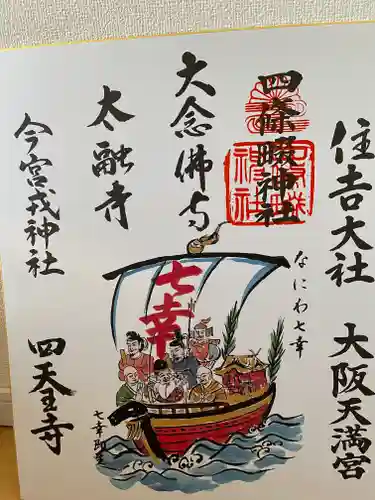 住吉大社
大阪天満宮
四條畷神社
なにわ七幸
大念佛寺
太融寺
今宮戎神社
四天王寺
七幸